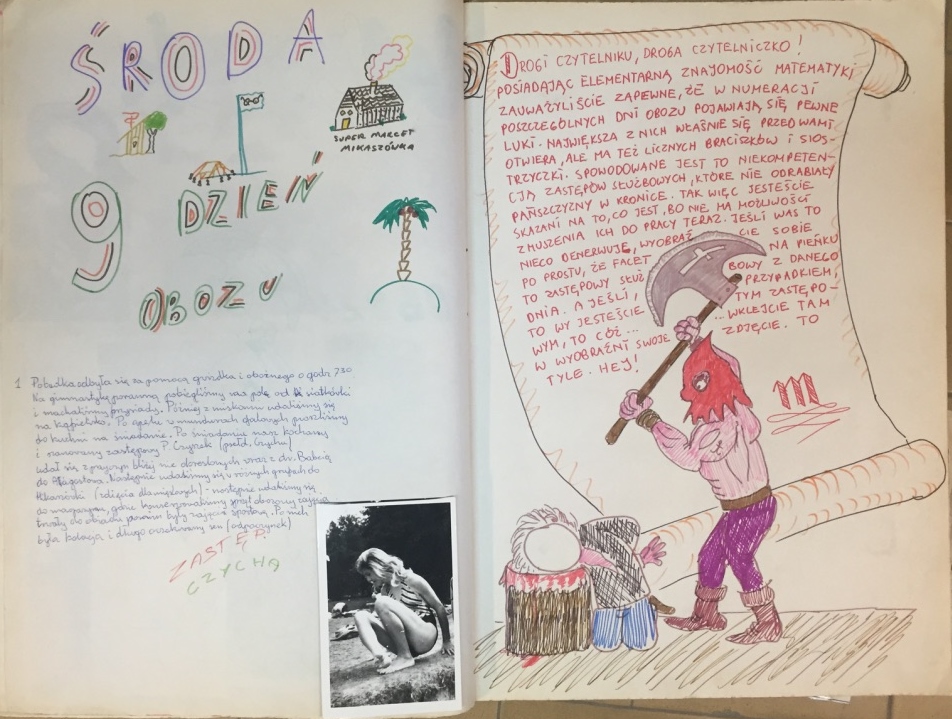 ŚRODA
SUPER MARCET
MIKASZÓWKA
9 DZIEŃ
OBOZU
1 Pobudka odbyła się za pomocą gwizdka i oboźnego o godz. 7.30
Na gimnastykę poranną pobiegliśmy na pole od siatkówki
i machaliśmy
na kąpielisko. Po apelu w mundurach galowych poszliśmy
do kuchni na śniadanie. Po śniadaniu nasz kochany
i szanowny zastępowy P. Czyżek (pseud. Czychu)
udał się z
do Augustowa. Następnie udaliśmy się w różnych grupach do
Mikaszówki (zdjęcia dla większych) - następnie udaliśmy się
do magazynu, gdzie
trwały do obiadu
była kolacja i długo oczekiwany sen (odpoczynek)
ZASTĘP
CZYCHA
DROGI CZYTELNIKU, DROGA CZYTELNICZKO!
POSIADAJĄC ELEMENTARNĄ ZNAJOMOŚĆ MATEMATYKI
ZAUWAŻYLIŚCIE ZAPEWNE, ŻE W NUMERACJI
POSZCZEGÓLNYCH DNI OBOZU POJAWIAJĄ SIĘ PEWNE
LUKI. NAJWIĘKSZA Z NICH WŁAŚNIE SIĘ PRZED WAMI
OTWIERA, ALE MA TEŻ LICZNYCH BRACISZKÓW I SIOS-
TRZYCZKI. SPOWODOWANE JEST TO NIEKOMPETEN-
CJĄ ZASTĘPÓW SŁUŻBOWYCH, KTÓRE NIE ODRABIAŁY
PAŃSZCZYZNY W KRONICE. TAK WIĘC JESTEŚCIE
SKAZANI NA TO, CO JEST, BO NIE MA MOŻLIWOŚCI
ZMUSZENIA ICH DO PRACY TERAZ. JEŚLI WAS TO
NIECO DENERWUJE, WYOBRAŹCIE SOBIE
PO PROSTU, ŻE FACET NA PIEŃKU
TO ZASTĘPOWY SŁUŻBOWY Z DANEGO
DNIA. A JEŚLI, PRZYPADKIEM,
TO WY JESTEŚCIE TYM ZASTĘPO-
WYM, TO CÓŻ... ...WKLEJCIE TAM
W WYOBRAŹNI SWOJE ZDJĘCIE. TO
TYLE. HEJ!